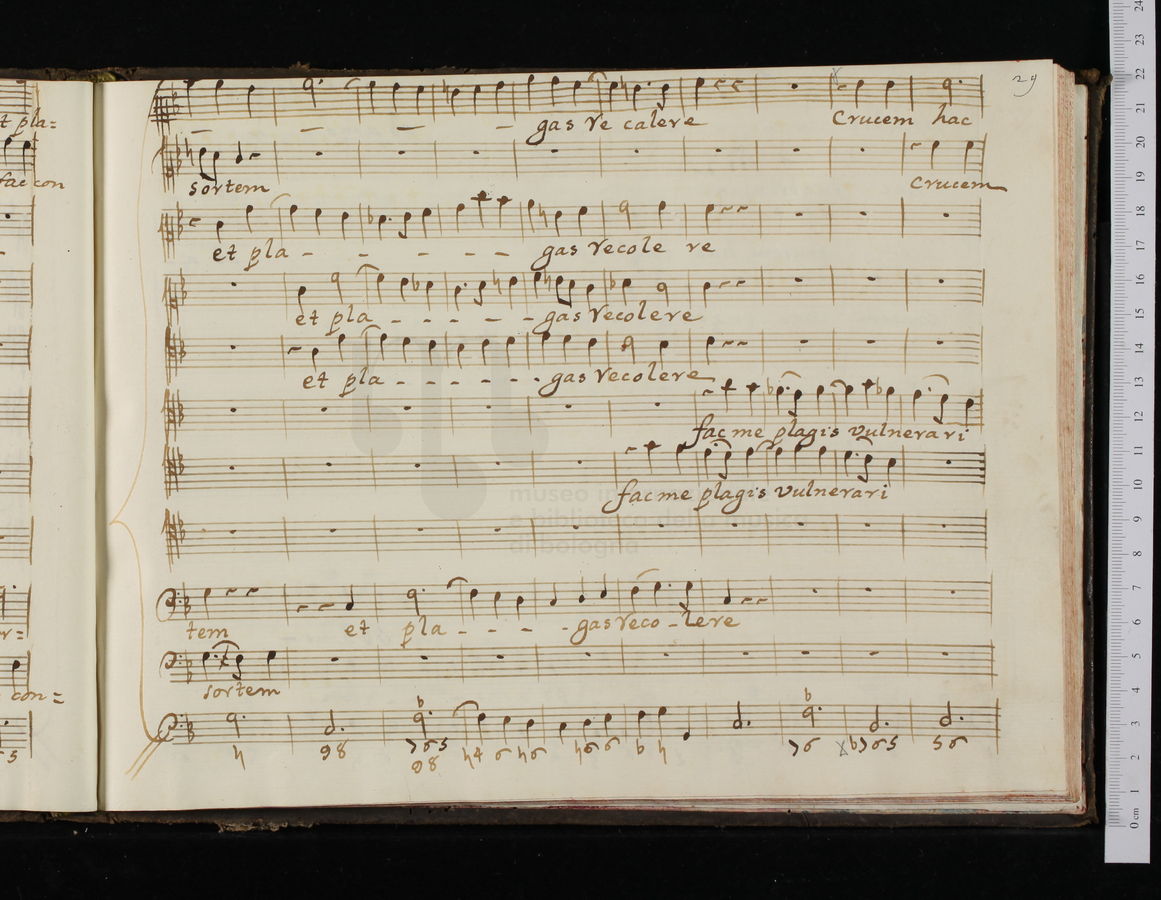 29
t pla=
gas re calere Crucem hac
fac con
sortem Crucem
et pla - - - - - gas recole re
et pla - - - - - gas recolere
et pla - - - - - - gas recolere
fac me plagis vulnerari
fac me plagis vulnerari
museo in
e biblioteca della musica
di bologna
r= tem et pla - - - - gas reco - lere
con= sortem
b b
5 h 98 765 h4 6 h6 h66 b h 76 b765 56
98
0 cm 1 2 3 4 5 6 7 8 9 10 11 12 13 14 15 16 17 18 19 20 21 22 23 24